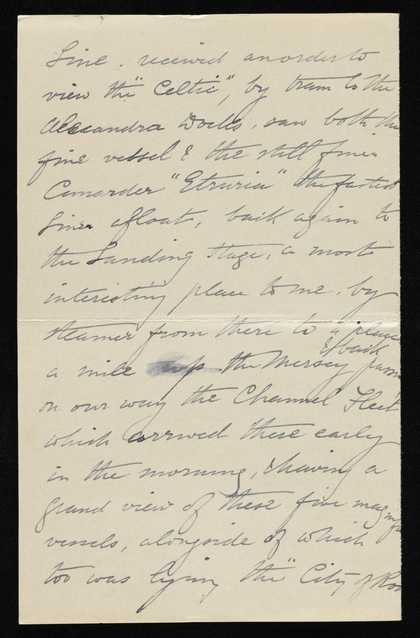 Line. received an order to
view the "Celtic", by tram to the
Alexandra Docks, saw both this
fine vessel & the still finer
Cunarder "Etruria" the fastest
liner afloat, back again to
the Landing Stage, a most
interesting place to me. by
steamer from there to a place
& back
a mile up the Mersey
on our way the Channel Fleet
which arrived there early
in the morning, & having a
grand view of these five
vessels, alongside of which
too was lying the "City of